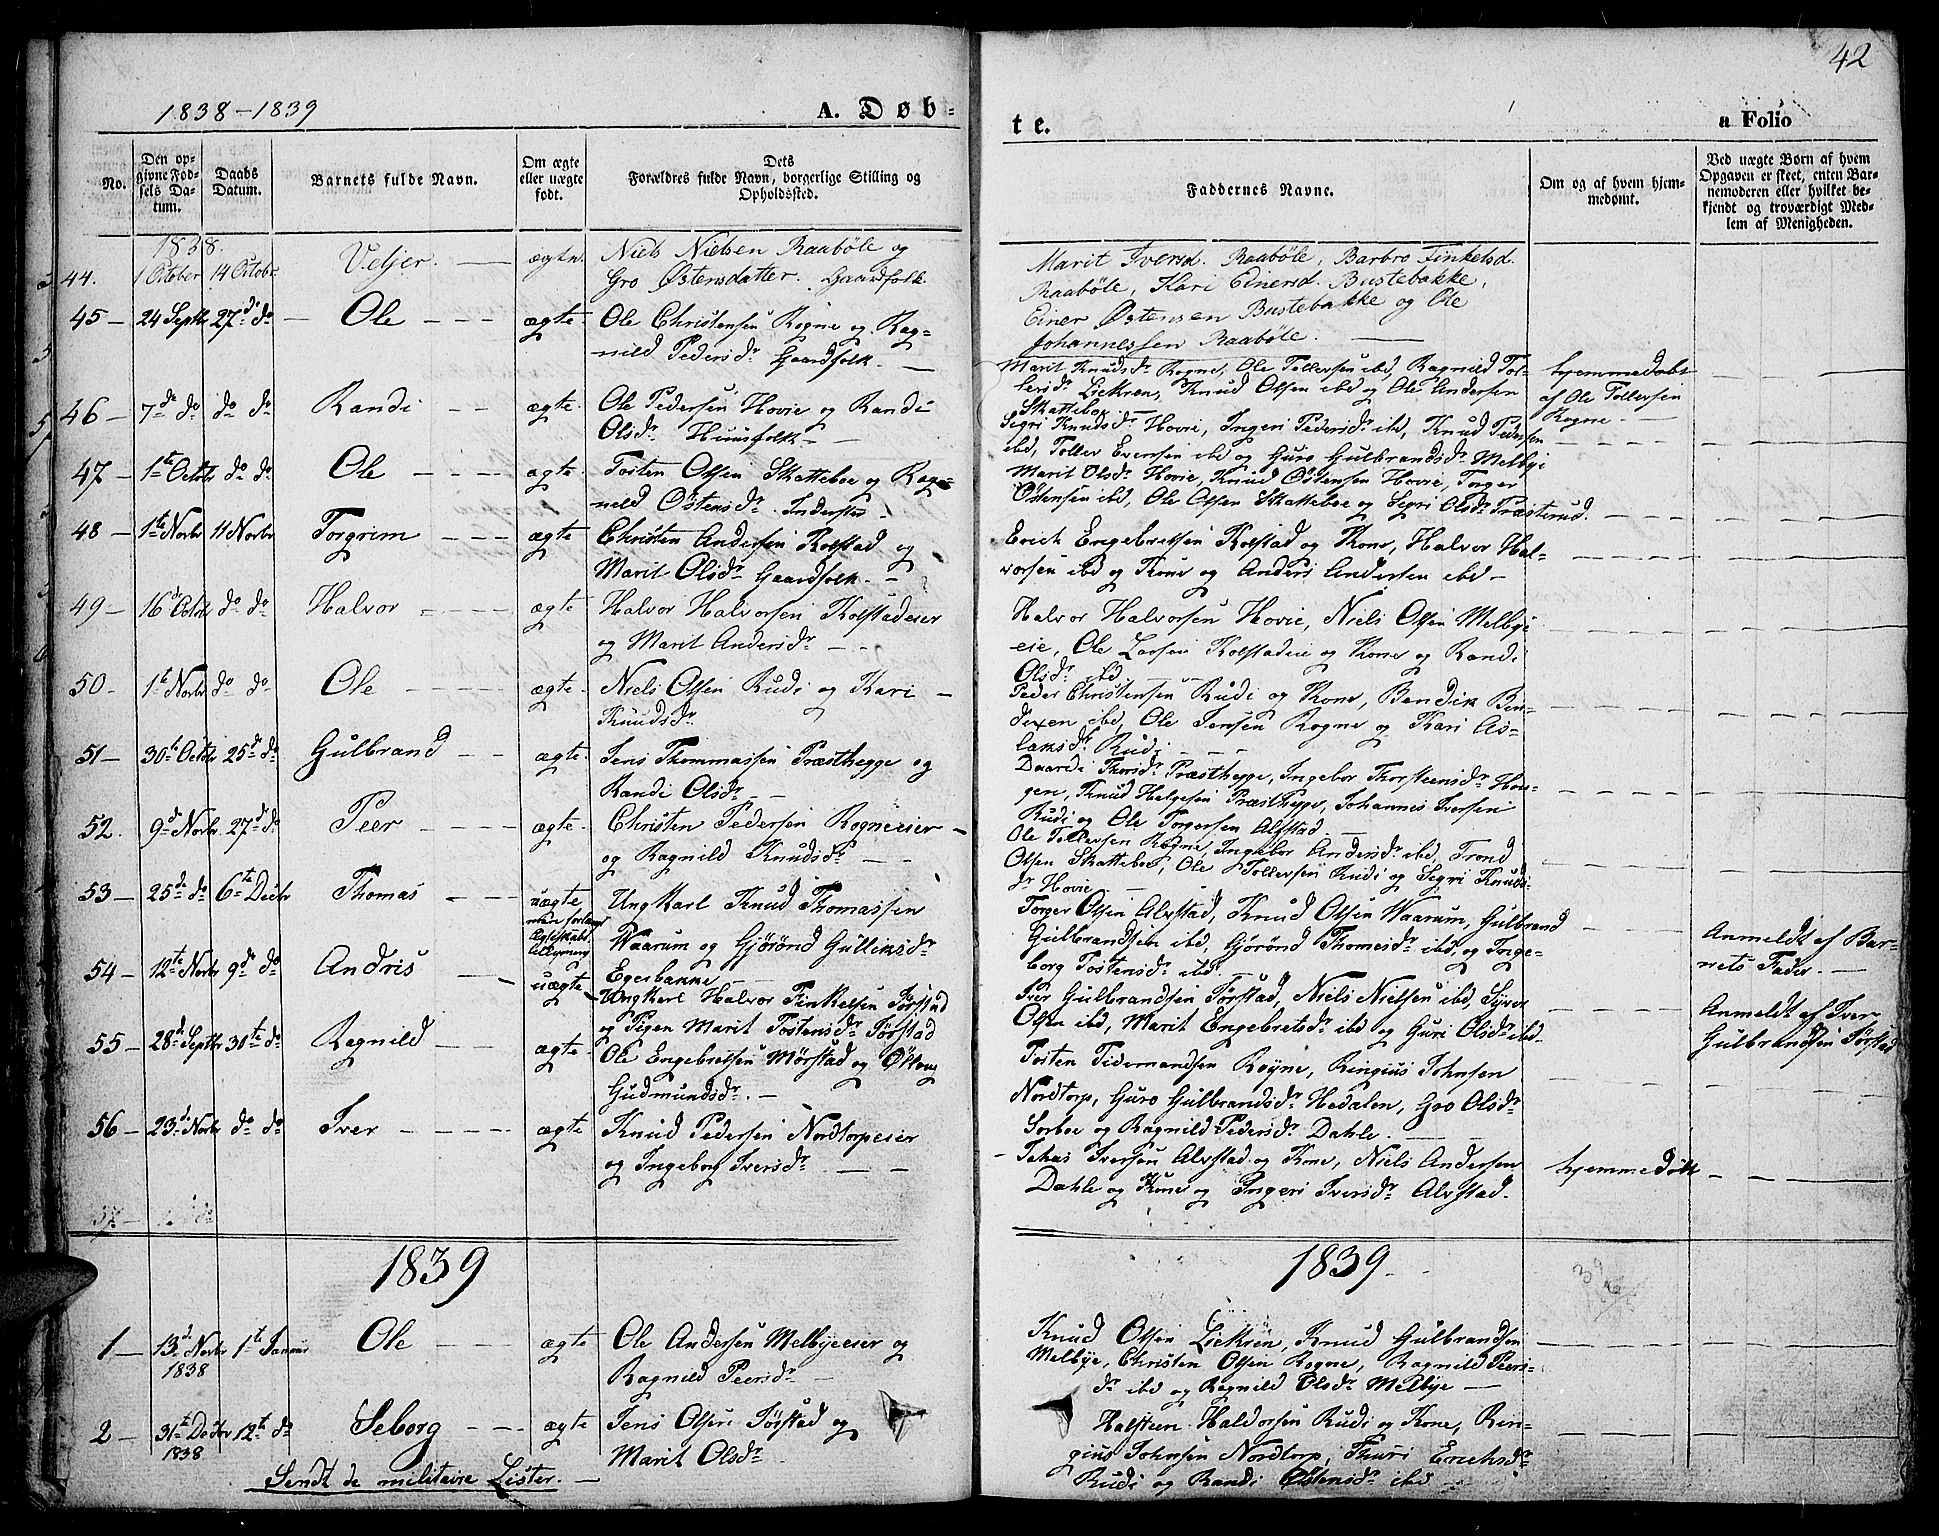 42
1838-1839
A. Døb-
te.
a Folio
No.
Den op-
givne Fød-
sels Da-
tum.
Daabs
Datum.
Barnets fulde Navn.
Om ægte
eller uægte
født.
Dets
Forældres fulde Navn, borgerlige Stilling og
Opholdssted.
Faddernes Navne.
Om og af hvem hjem-
medømt.
Ved uægte Børn af hvem
Opgaven er skeet, enten Bar-
nemoderen eller hvilket be-
kjendt og troværdigt Med-
lem af Menigheden.
1838.
44. 1 October 14 Octobr Veljer. ægte. Niels Nielsen Raabøle og
Gro Østensdatter. Gaardfolk.
Marit Iversd. Raabøle, Barbro Finkelsd.
Raabøle, Kari Einersd. Bustebakke,
Einer Østensen Bustebakke og Ole
Johannessen Raabøle.
45 24 Septbr 27d do Ole ægte Ole Christensen Rogne og Rag-
nild Pedersdr Gaardfolk
Marit Knudsdr Rogne, Ole Tollevsen ibd, Ragnild Tol-
levsdr Liekren, Knud Olsen ibd og Ole Andersen
Skattebo
hjemmedøbt
af Ole Tollevsen
Rogne
46 7de do do do Randi ægte Ole Pedersen Hovie og Randi
Olsdr Huusfolk
Sigri Knudsdr Hovie, Ingeri Pedersdr ibd, Knud Pedersen
ibd, Tollev Evensen ibd og Guro Gulbrandsdr Melbye
47 1te Octobr do do Ole ægte Tosten Olsen Skatteboe og Rag-
nild Østensdr Inderster
Marit Olsdr Hovie, Knud Østensen Hovie, Torger
Østensen ibd, Ole Olsen Skatteboe og Sigri Olsdr Præsterud.
48 1te Novbr 11 Novbr Torgrim ægte Christen Andersen Kolstad og
Marit Olsdr Gaardfolk
Erich Engebretsen Kolstad og Kone, Halvor Hal-
vorsen ibd og Kone og Anders Andersen ibd
49 16d Octbr do do Halvor ægte Halvor Halvorsen Kolstadeier
og Marit Andersdr
Halvor Halvorsen Hovie, Niels Olsen Melbye
eie, Ole Larsen Kolstadeie og Kone og Randi
Olsdr ibd
50 1te Novbr do do Ole ægte Niels Olsen Rudi og Kari
Knudsdr
Peder Christensen Rudi og Kone, Bendik Ben-
dixen ibd, Ole Jensen Rogne og Kari As-
laksdr Rudi
51 30te Octbr 25d do Gulbrand ægte Jens Thommassen Præsthegge og
Randi Olsdr
Thorsdr Præsthegge, Ingebor Thorsteinsdr Hou-
gen, Knud Helgesen Præsthegge, Johannes Iversen
Rudi og Ole Torgersen Alfstad
52. 9d Novbr 27d do Peer ægte Christen Pedersen Rogneeier
og Ragnild Knudsdr
Ole Tollevsen Rogne, Ingebor Andersdr ibd, Trond
Olsen Skatteboe, Ole Tollevsen Rudi og Sigri Knuds-
dr Hovie
53 25d do 6te Decbr Thomas uægte
Ungkarl Knud Thomassen
Waarum og Gjørond Gulliksdr
Egerbakke
Torger Olsen Alvstad, Knud Olsen Waarum, Gulbrand
Gulbrandsen ibd, Gjørond Thomesdr ibd, og Inge-
borg Tostensdr ibd
Anmeldt af Bar-
nets Fader.
54 12te Novbr 9d do Andris uægte Ungkarl Halvor Finkelsen Førstad
og Pigen Marit Tostensdr Førstad
Iver Gulbrandsen Førstad, Niels Nielsen ibd, Syver
Olsen ibd, Marit Engebretsdr ibd og Guri Olsdr ibd
Anmeldt af Iver
Gulbrandsen Førstad
55 28d Septbr 30te do Ragnild ægte Ole Engebretsen Mørstad og
Gudmundsdr.
Tosten Tidemandsen Røyne, Ringius Johnsen
Nordtorp, Guro Gulbrandsdr Hedalen, Gro Olsdr
Sorboe og Ragnild Pedersdr Dahle.
56 23d Novbr do do Iver ægte Knud Pedersen Nordtorpeier
og Ingeborg Iversdr
Iversen Alvstad og Kone, Niels Andersen
Dahle og Kone og Ingeri Iversdr Alvstad.
hjemmedøbt
1839
1839
1 13d Novbr 1te Januar Ole ægte Ole Andersen Melbyeeier og
1838 Ragnild Peersdr
Knud Olsen Liekren, Knud Gulbrandsen
Melbye, Christen Olsen Rogne, Ragnild Peers-
dr ibd og Ragnild Olsdr Melbye
2 31te Decbr 12te do Seborg ægte Jens Olsen Førstad og
1838 Marit Olsdr
Halsteen Haldorsen Rudi og Kone, Rin-
gius Johnsen Nordtorp, Thuri Erichsdr
Rudi og Randi Østensdr ibd
Sendt de militaire Lister.